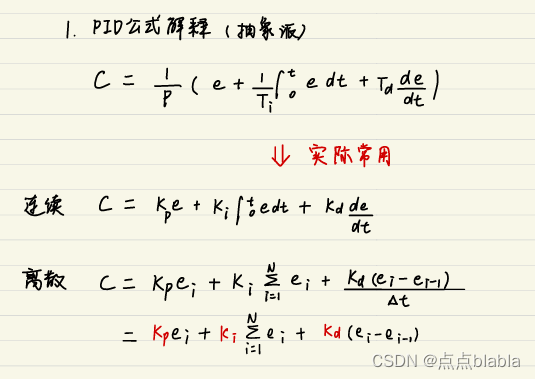 1. PID公式解释（抽象派）
C = 1/P ( e + 1/Ti ∫₀ᵗ e dt + Td de/dt )
⇓ 实际常用
连续 C = Kpe + Ki ∫₀ᵗ edt + Kd de/dt
离散 C = Kpei + Ki ∑ᵢ₌₁ᴺ ei + Kd (ei - ei-1)/Δt
= Kpei + Ki ∑ᵢ₌₁ᴺ ei + Kd (ei - ei-1)
CSDN @点点blabla